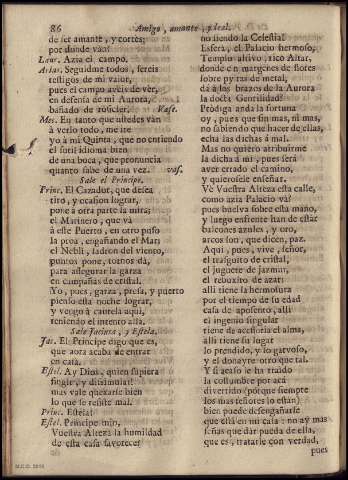 86
Amigo, amante, y leal.
de ser amante, y cortés;
por donde van?
Laur. Azia el campo.
Arias. Seguidme todos, sereis
testigos de mi valor,
pues el campo aveis de ver,
en defensa de mi Aurora,
bañado de rosicler. Vase.
Mec. En tanto que ustedes van
à verlo todo, me irè
yo à mi Quinta, que no entiendo
el sutil idioma bien
de una boca, que pronuncia
quanto sabe de una vez. vas.
Sale el Principe.
Princ. El Cazador, que desea
tiro, y ocasion lograr,
pone à otra parte la mira;
el Marinero, que và
à este Puerto, en otro puso
la proa, engañando el Mar;
el Nebli, ladron del viento,
puntas pone, tornos dà,
para assegurar la garza
en campañas de cristal.
Yo, pues, garza, presa, y puerto
pienso esta noche lograr,
y vengo à cautela aqui,
teniendo el intento allà.
Sale Jacinta, y Estela.
Jac. El Principe digo que es,
que aora acaba de entrar
en casa.
Estel. Ay Dios, quien supiera
fingir, y dissimular!
mas vale quexarse bien
lo que se resiste mal.
Princ. Estela!
Estel. Principe mio,
Vuestra Alteza la humildad
de esta casa favorece?
no siendo la Celestial
Esfera, el Palacio hermoso,
Templo altivo, rico Altar,
donde en margenes de flores
sobre pyras de metal,
dà à los brazos de la Aurora
la docta Gentilidad?
Prodiga anda la fortuna
oy, pues que sin mas, ni mas,
no sabiendo que hacer de ellas,
echa las dichas à mal.
Mas no quiero atribuirme
la dicha à mi, pues serà
aver errado el camino,
y quieroselo enseñar.
Vè Vuestra Alteza esta calle,
como azia Palacio và?
pues buelva sobre esta mano,
y luego enfrente han de estàr
balcones azules, y oro,
arcos son, que dicen, paz.
Aqui, pues, vive, señor,
el trasgurto de cristal,
el juguete de jazmin,
el rebozito de azar:
alli tiene la hermosura
por el tiempo de su edad
casa de aposento, alli
el ingenio singular
tiene de accessoria el alma,
alli tiene su lugar
lo prendido, y lo garvoso,
y el donayre otro que tal.
Y si acaso le ha traido
la costumbre por acà
divertido (porque siempre
los mas señores lo estàn)
bien puede desengañarse
que està en mi casa: no ay mas
señas que dar pueda de ella,
que es, tratarle con verdad,
pues